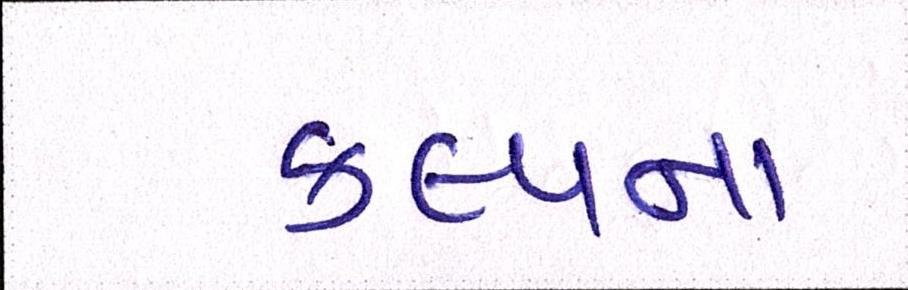 કલ્પના